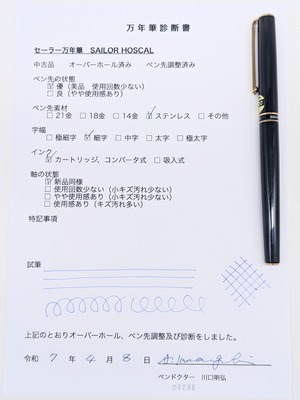 万年筆診断書
セーラー万年筆 SAILOR HOSCAL
中古品 オーバーホール済み ペン先調整済み
ペン先の状態
☑優（美品 使用回数少ない）
□良（やや使用感あり）
ペン先素材
□21金 □18金 □14金 ☑ステンレス □その他
字幅
□極細字 ☑細字 □中字 □太字 □極太字
インク
☑カートリッジ、コンバータ式 □吸入式
軸の状態
☑新品同様
□使用回数少ない（小キズ汚れ少ない）
□やや使用感あり（小キズ汚れ少ない）
□使用感あり（キズ汚れ多い）
特記事項
試筆
上記のとおりオーバーホール、ペン先調整及び診断をしました。
令和 7 年 4 月 8 日
ペンドクター 川口明弘